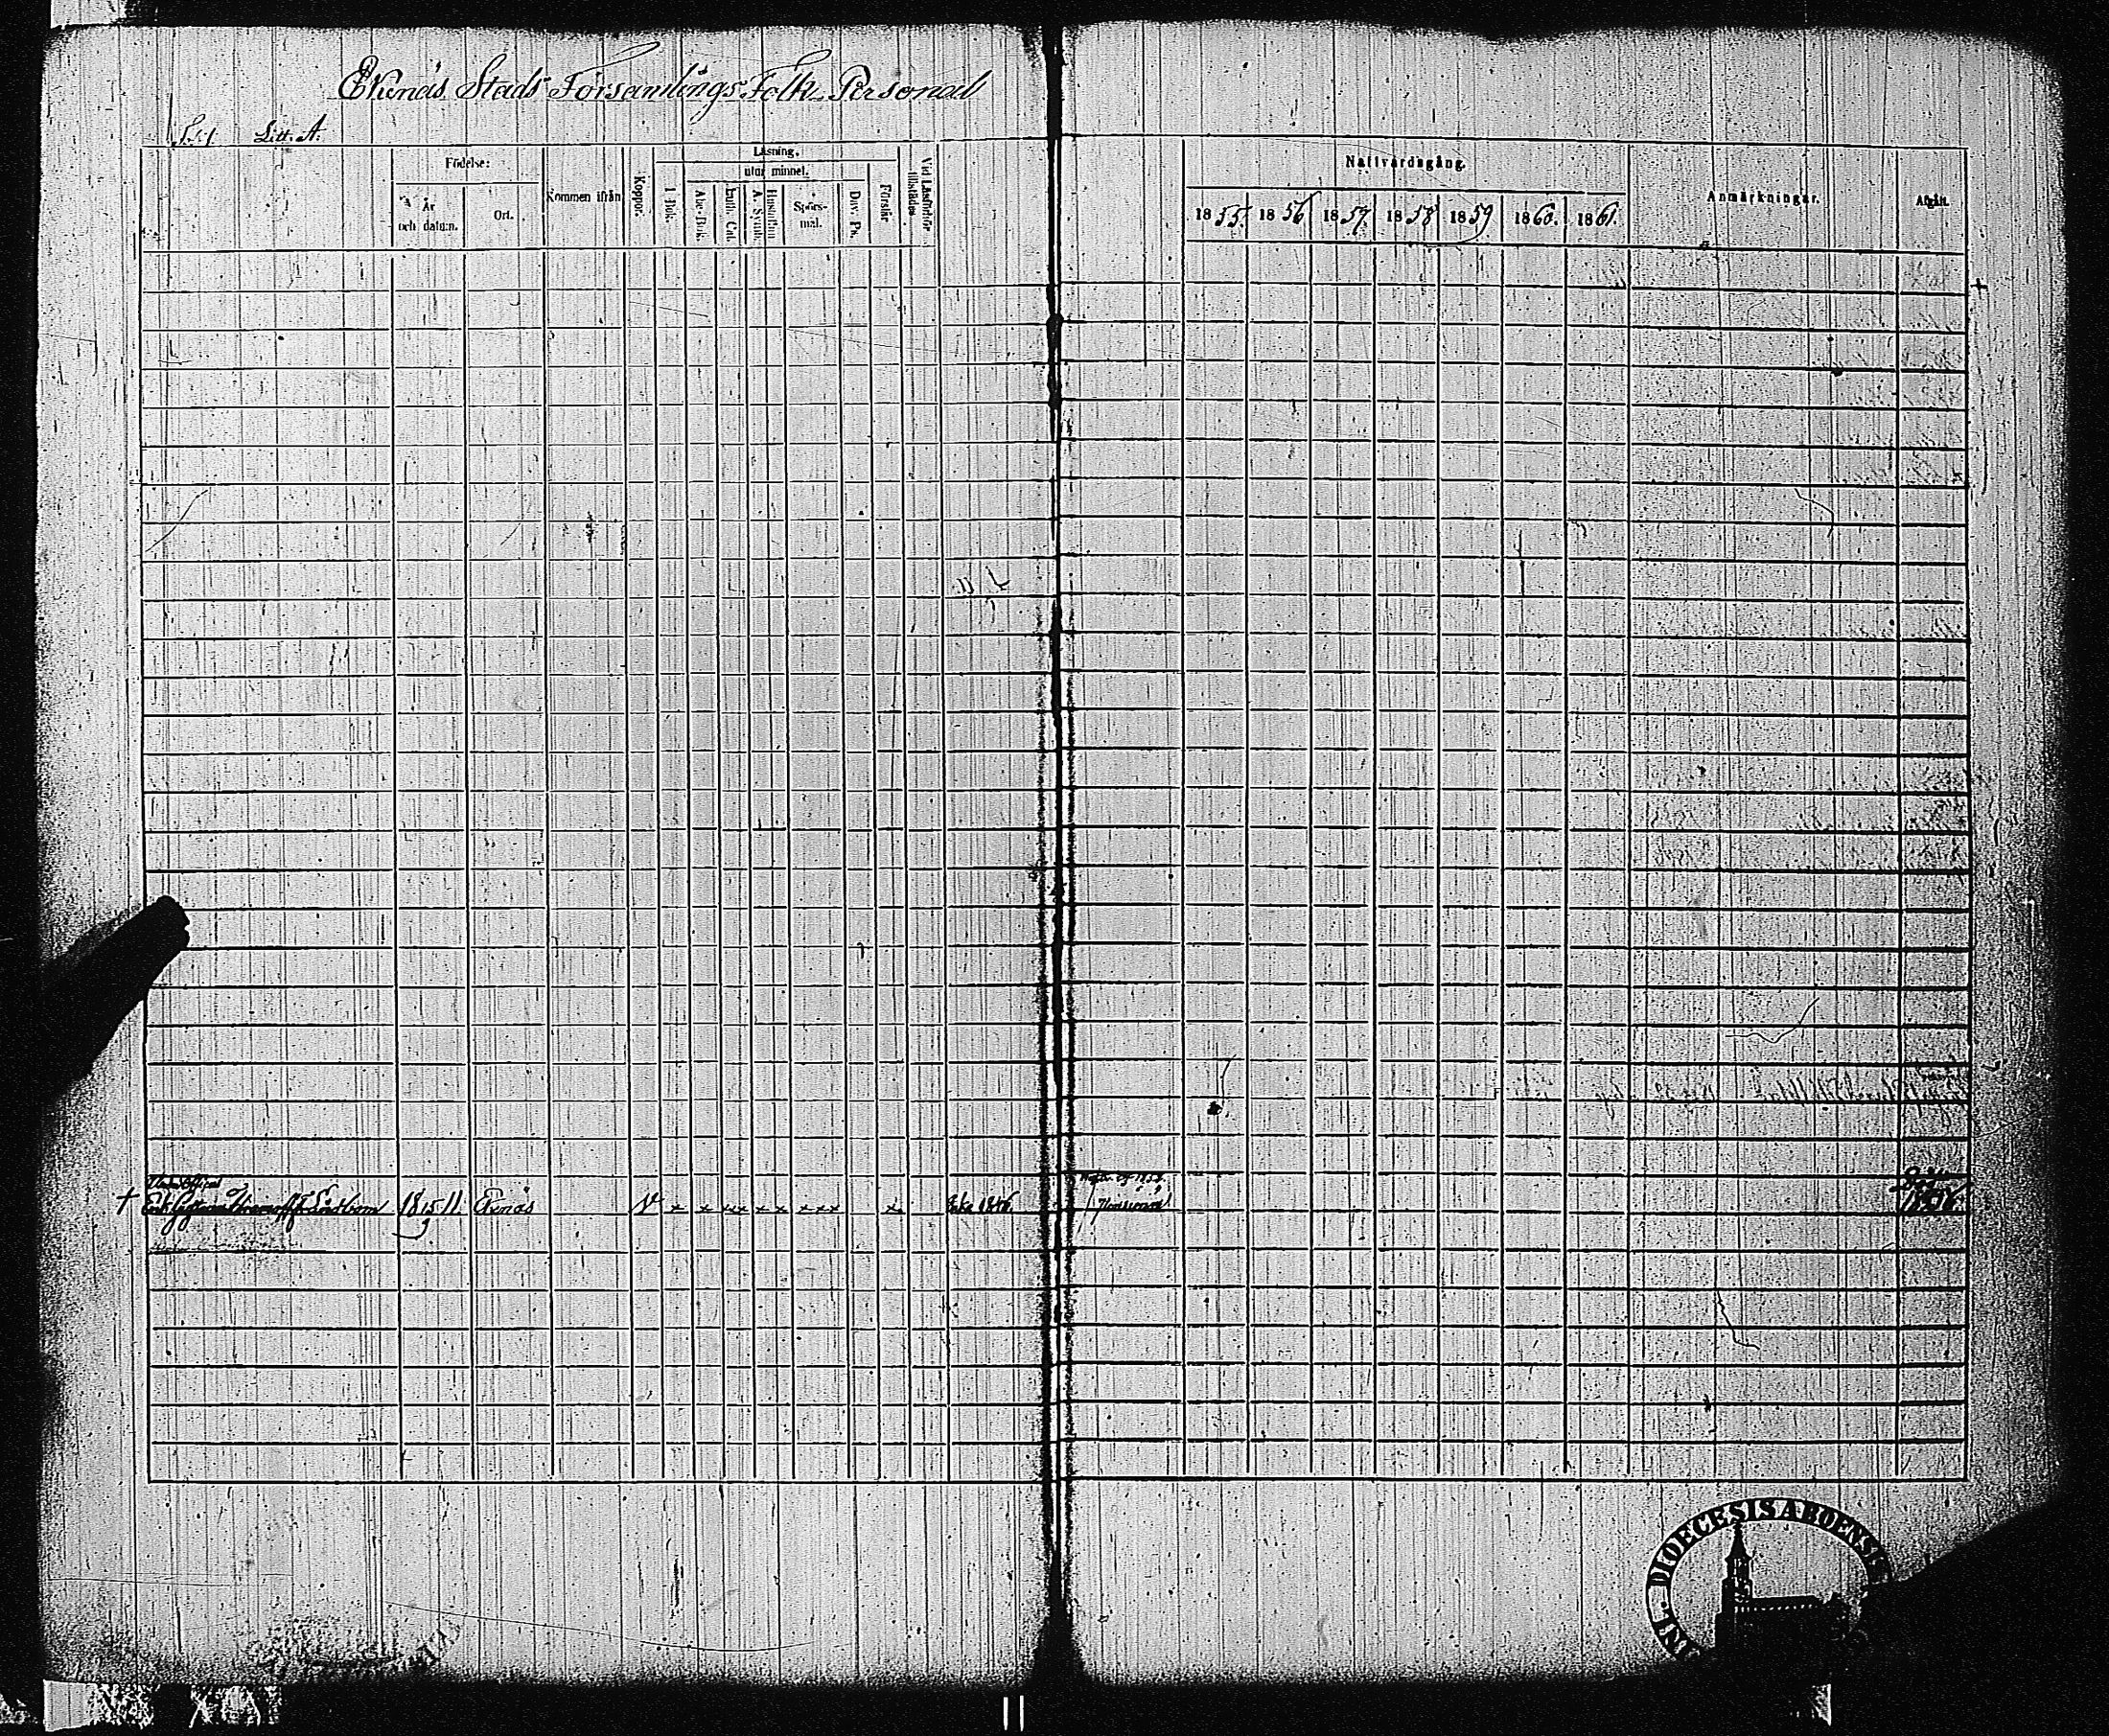 Ekenäs Stads Församlings Folk Personal
Litt. A.
Födelse:
År och datum.
Ort.
Kommen ifrån
Koppor.
Läsning,
I Bok.
utur minnet.
Abc-Bok.
Luth. Cat.
Hustaflan A. Symb.
Spörsmål.
Dav. Ps.
Förstår
Vid Läsförhör tillstädes
Nattvardsgång.
1855. 1856 1857. 1858 1859 1860. 1861.
Anmärkningar.
Afgått.
† Sandbom 1815 11/9 Ekenäs v x x xxx x x xxx x
Död
DIOECESIS ABOENSIS